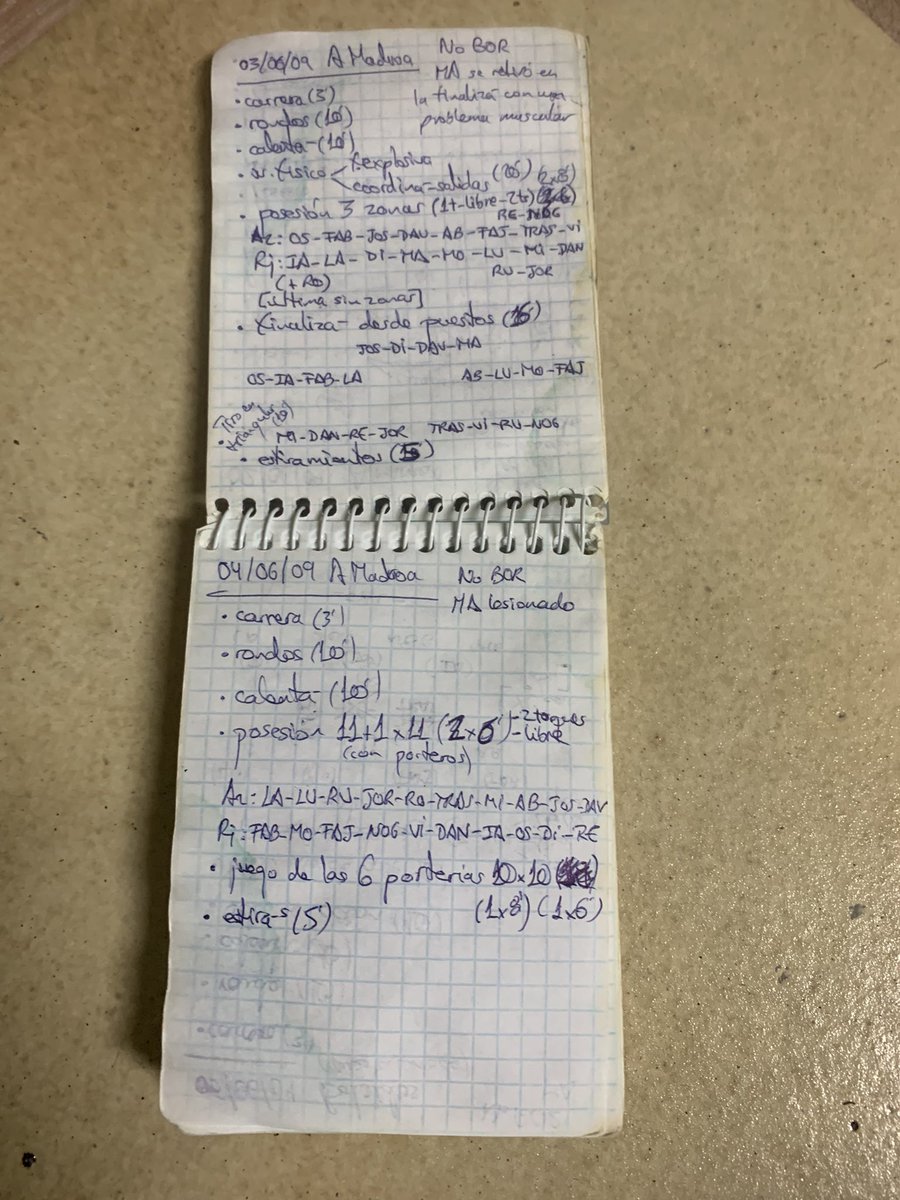 03/06/09 A Madroa
No BOR
MA se retiró en
la finaliza con un
problema muscular
• carrera (3')
• rondos (10')
• calenta- (10')
• físico < f.explosiva
coordina-salidas (20') (2x8')
• posesión 3 zonas (1t-libre-2ts)
RE-NOG
Az: OS-FAB-JOS-DAV-AB-FAJ-TRAS-Vi
Rj: IA-LA-Di-MA-MO-LU-Mi-DAN
(+RO)
RU-JOR
[última sin zonas]
• finaliza- desde puestos (15')
JOS-Di-DAV-MA
OS-IA-FAB-LA
AB-LU-MO-FAJ
• Tiro en
triangular
(10')
Mi-DAN-RE-JOR
TRAS-Vi-RU-NOG
• estiramientos (5')
04/06/09 A Madroa
No BOR
MA lesionado
• carrera (3')
• rondos (10')
• calenta- (10')
• posesión 11+1x11 (2x6') -2 toques
-libre
(con porteros)
Az: LA-LU-RU-JOR-RO-TRAS-Mi-AB-JOS-DAV
Rj: FAB-MO-FAJ-NOG-Vi-DAN-IA-OS-Di-RE
• juego de las 6 porterías 10x10
(1x8') (1x6')
• estira-s (5')